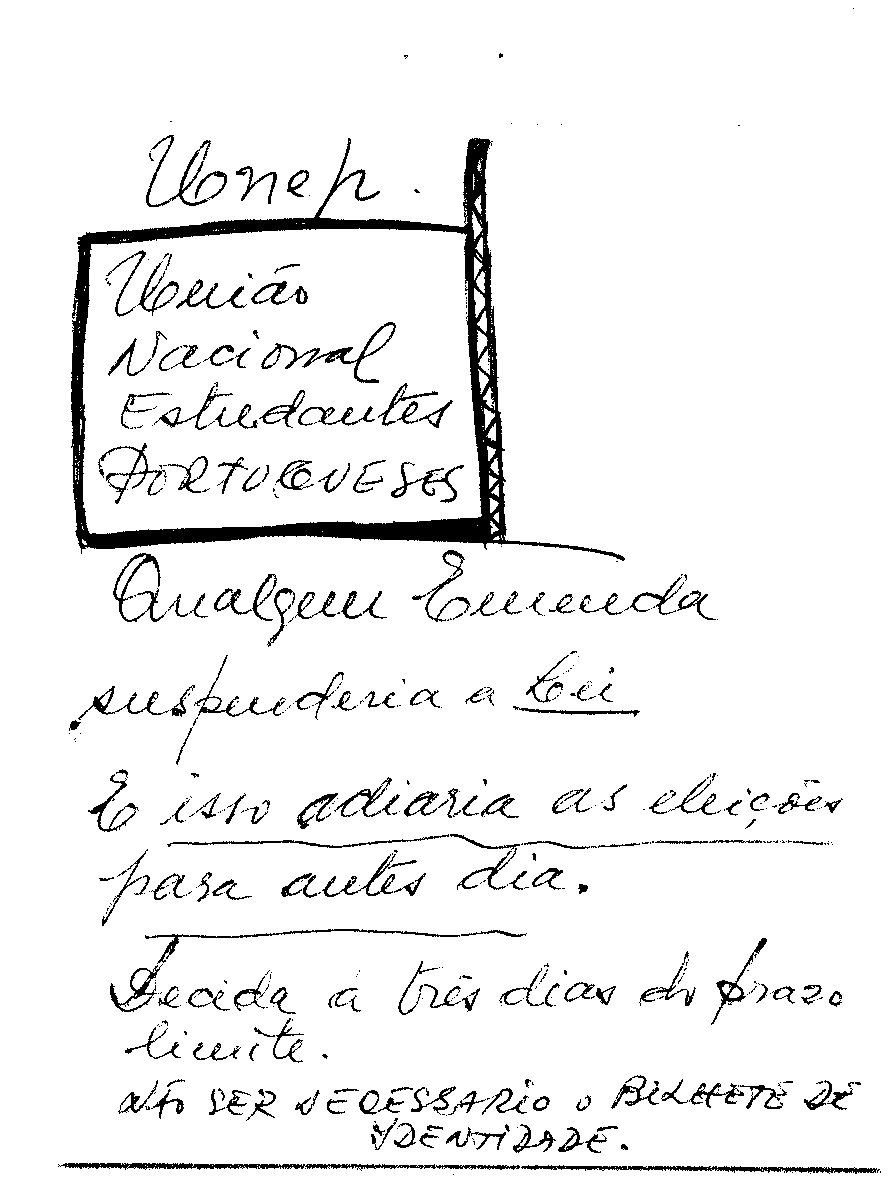 Unep.
União
Nacional
Estudantes
PORTUGUESES
Qualquer Emenda
suspenderia a Lei
E isso adiaria as eleições
para antes dia.
Decida á três dias do prazo
limite.
NÃO SER NECESSARIO O BILHETE DE
YDENTIDADE.